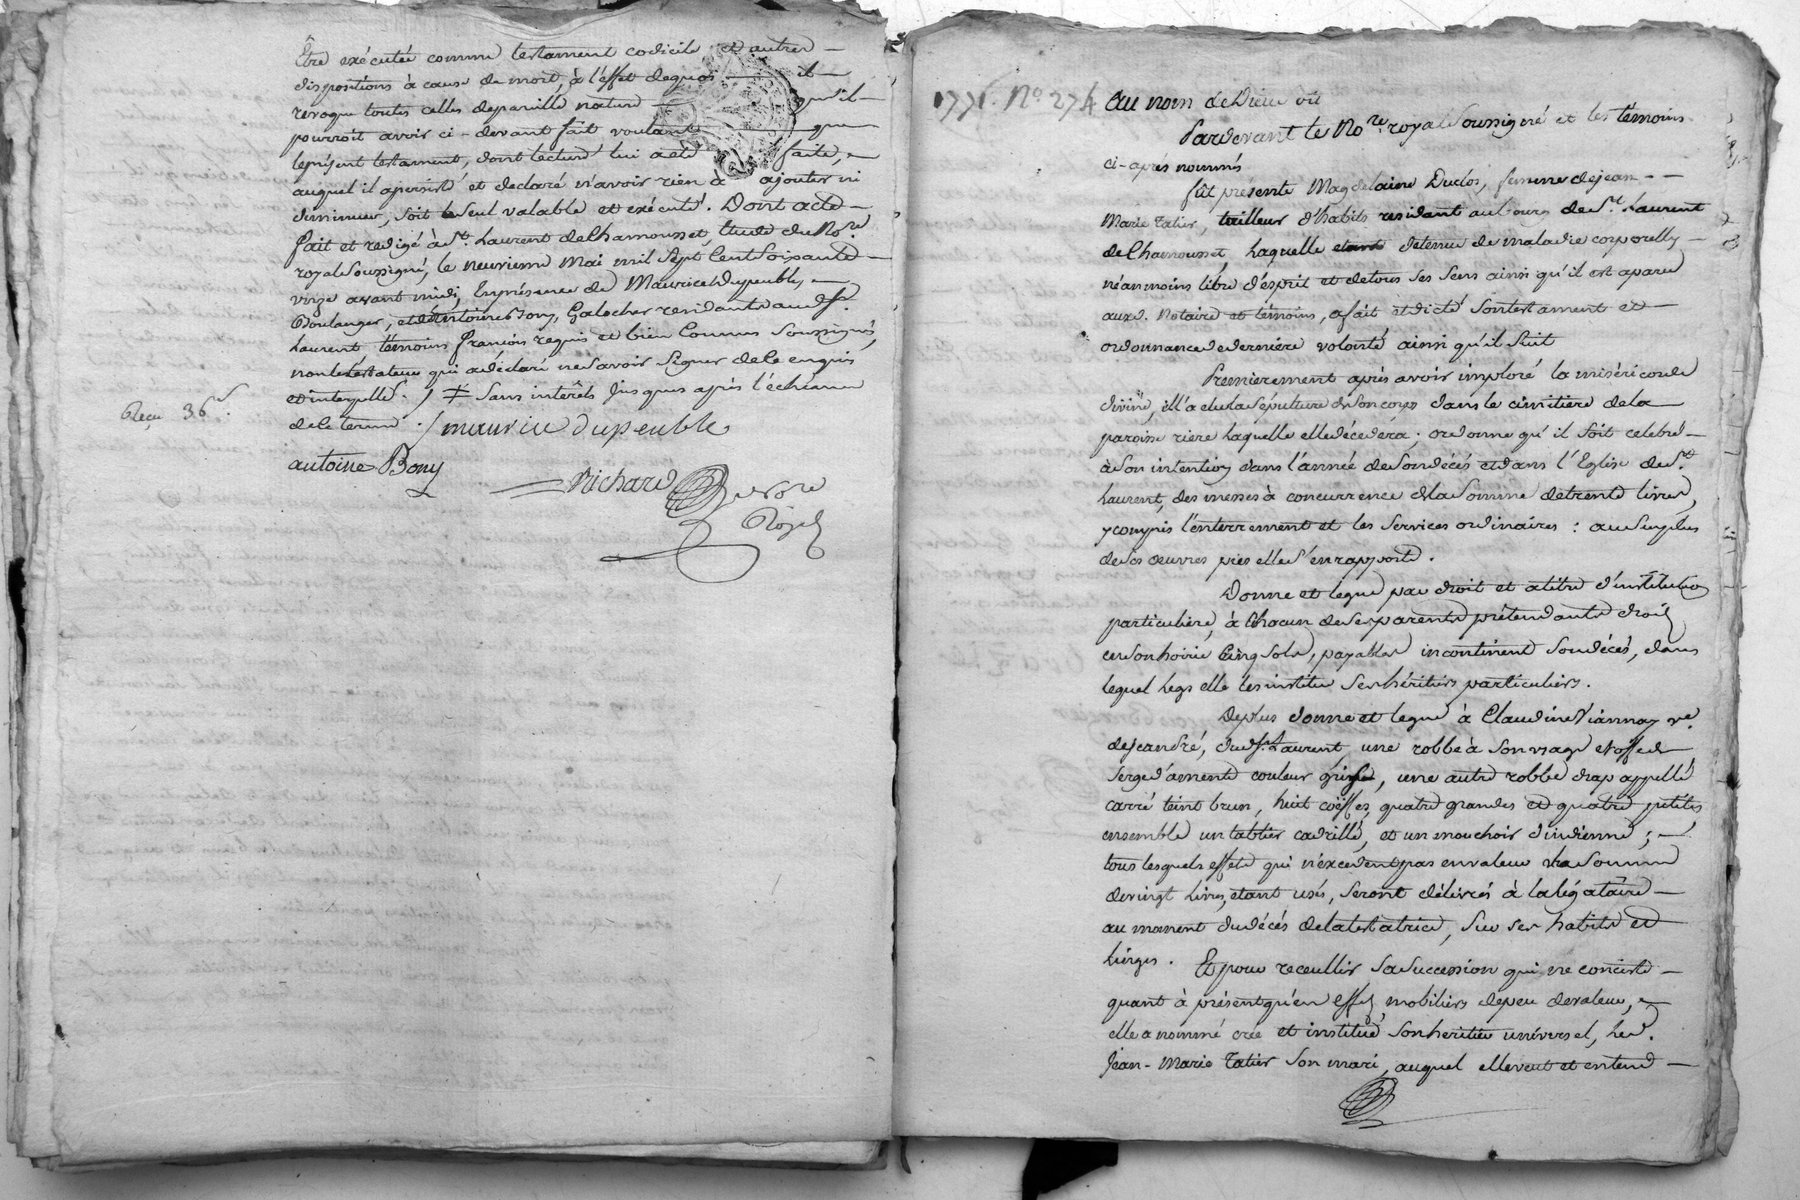 Être exécutée comme testament codicile et autres
dispositions à cause de mort, à l'effet dequoi il
revoque toutes celles depareille nature qu'il
pourroit avoir ci-devant fait voulant que
leprésent testament, dont lecture lui a été faite,
auquel il apersisté et declaré n'avoir rien à ajouter ni
diminuer, soit le seul valable et exécuté. Dont acte
fait et redigé à St. Laurent deChamousset, Etude du No.re
royal Soussigné, le neuvieme Mai mil Sept Cent Soixante
 avant midi, Enprésence de Maurice Dupeuble,
Boulanger, et d'Antoine Bony, Galocher residants aud. St.
Laurent témoins françois requis et bien Connus Soussignés,
non letestateur qui adéclaré nesavoir Signer dele enquis
et interpellé. / ≠ Sans intérêts Jusques après l'échéance
dele terme. / maurice dupeuble
Reçu 36s.
antoine Bony
Richard
No.re
Royal
1776. No. 274
Au nom deDieu soit
Pardevant le No.re royal Soussigné et les témoins
ci-après nommés
fût présente Magdelaine Duclos, femme dejean
Marie Tatier, tailleur d'habits residant aubourg deSt. Laurent
deChamousset, Laquelle etant detenue de maladie corporelle,
néanmoins libre d'ésprit et detous ses Sens ainsi qu'il est aparu
auxd. Notaire et témoins, afait et dicté Sontestament et
ordonnance dedernière volonté ainsi qu'il Suit
Premierement après avoir imploré la miséricorde
divine, ell'a élu la sépulture deSon corps dans le cimitière dela
paroisse rière Laquelle elledécédera; ordonne qu'il Soit celebré
àSon intention dans l'année deSondécés etdans l'Eglise deSt.
Laurent, des messes à concurrence dela Somme detrente livres,
ycompris l'enterrement et les Services ordinaires : au Surplus
deSes œuvres pies elle s'en rapporte.
Donne et legue par droit et atitre d'institution
particulière, à Chacun deSes parents prétendants droit
enSonhoirie Cinq Sols, payables incontinent Sondécés, dans
lequel Legs elle les institue Ses héritiers particuliers.
Deplus donne et legue à Claudine Viannay ve.
dejeandré, dud. St. Laurent, une robbe à Son usage etoffe de
Serge d'ament couleur grise, une autre robbe drap appellé
carré teint brun, huit coëffes, quatre grandes et quatre petites
ensemble un tablier cadrillé, et un mouchoir d'indienne;
tous lesquels effets qui n'excedent pas envaleur dela Somme
devingt Livres, etant usés, Seront délivrés à lalégataire
au moment dudécés delatestatrice, Sur Ses habits et
Linges. Et pour receullir SaSuccession qui ne conciste
quant à présent qu'en effets mobiliers depeu devaleur,
elle a nommé crée et institué Son heritier universel, Led.
Jean-Marie Tatier Son mari, auquel elleveut et entend